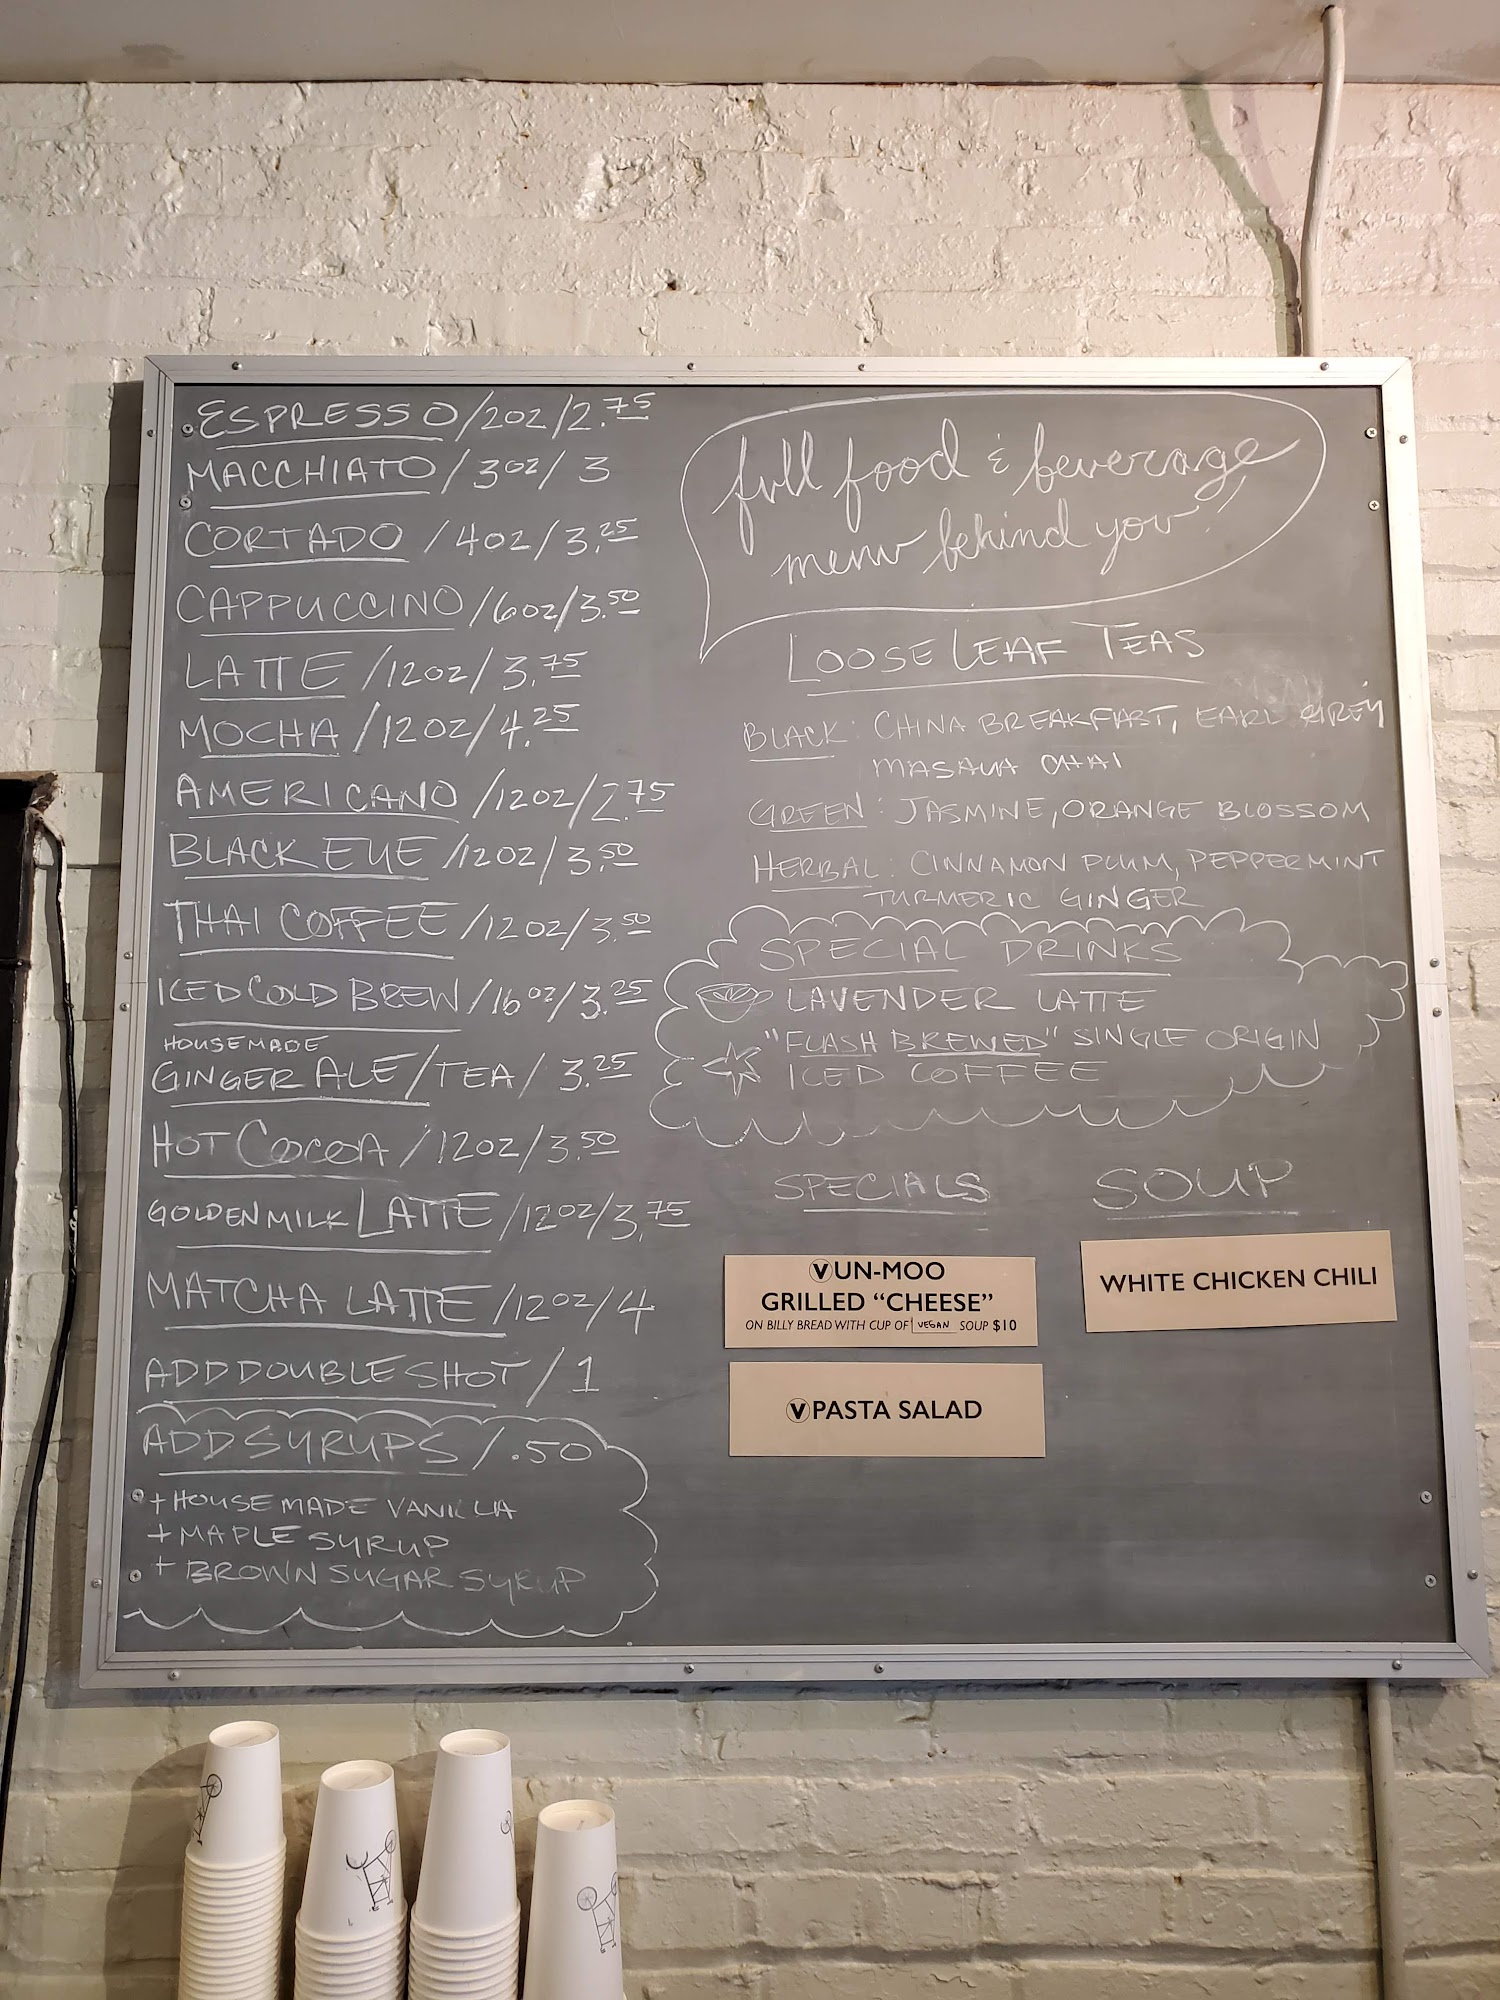 ESPRESSO/2OZ/2.75
MACCHIATO/3OZ/3
CORTADO/4OZ/3.25
CAPPUCCINO/6OZ/3.50
LATTE/12OZ/3.75
MOCHA/12OZ/4.25
AMERICANO/12OZ/2.75
BLACK EYE/12OZ/3.50
THAI COFFEE/12OZ/3.50
ICED COLD BREW/16OZ/3.25
HOUSEMADE
GINGER ALE/TEA/3.25
HOT COCOA/12OZ/3.50
GOLDEN MILK LATTE/12OZ/3.75
MATCHA LATTE/12OZ/4
ADD DOUBLE SHOT/1
ADD SYRUPS/.50
+HOUSEMADE VANILLA
+MAPLE SYRUP
+BROWN SUGAR SYRUP
full food & beverage
menu behind you!
LOOSE LEAF TEAS
BLACK: CHINA BREAKFAST, EARL GREY
MASALA CHAI
GREEN: JASMINE, ORANGE BLOSSOM
HERBAL: CINNAMON PLUM, PEPPERMINT
TURMERIC GINGER
SPECIAL DRINKS
LAVENDER LATTE
"FLASH BREWED" SINGLE ORIGIN
ICED COFFEE
SPECIALS
V UN-MOO
GRILLED "CHEESE"
ON BILLY BREAD WITH CUP OF VEGAN SOUP $10
V PASTA SALAD
SOUP
WHITE CHICKEN CHILI